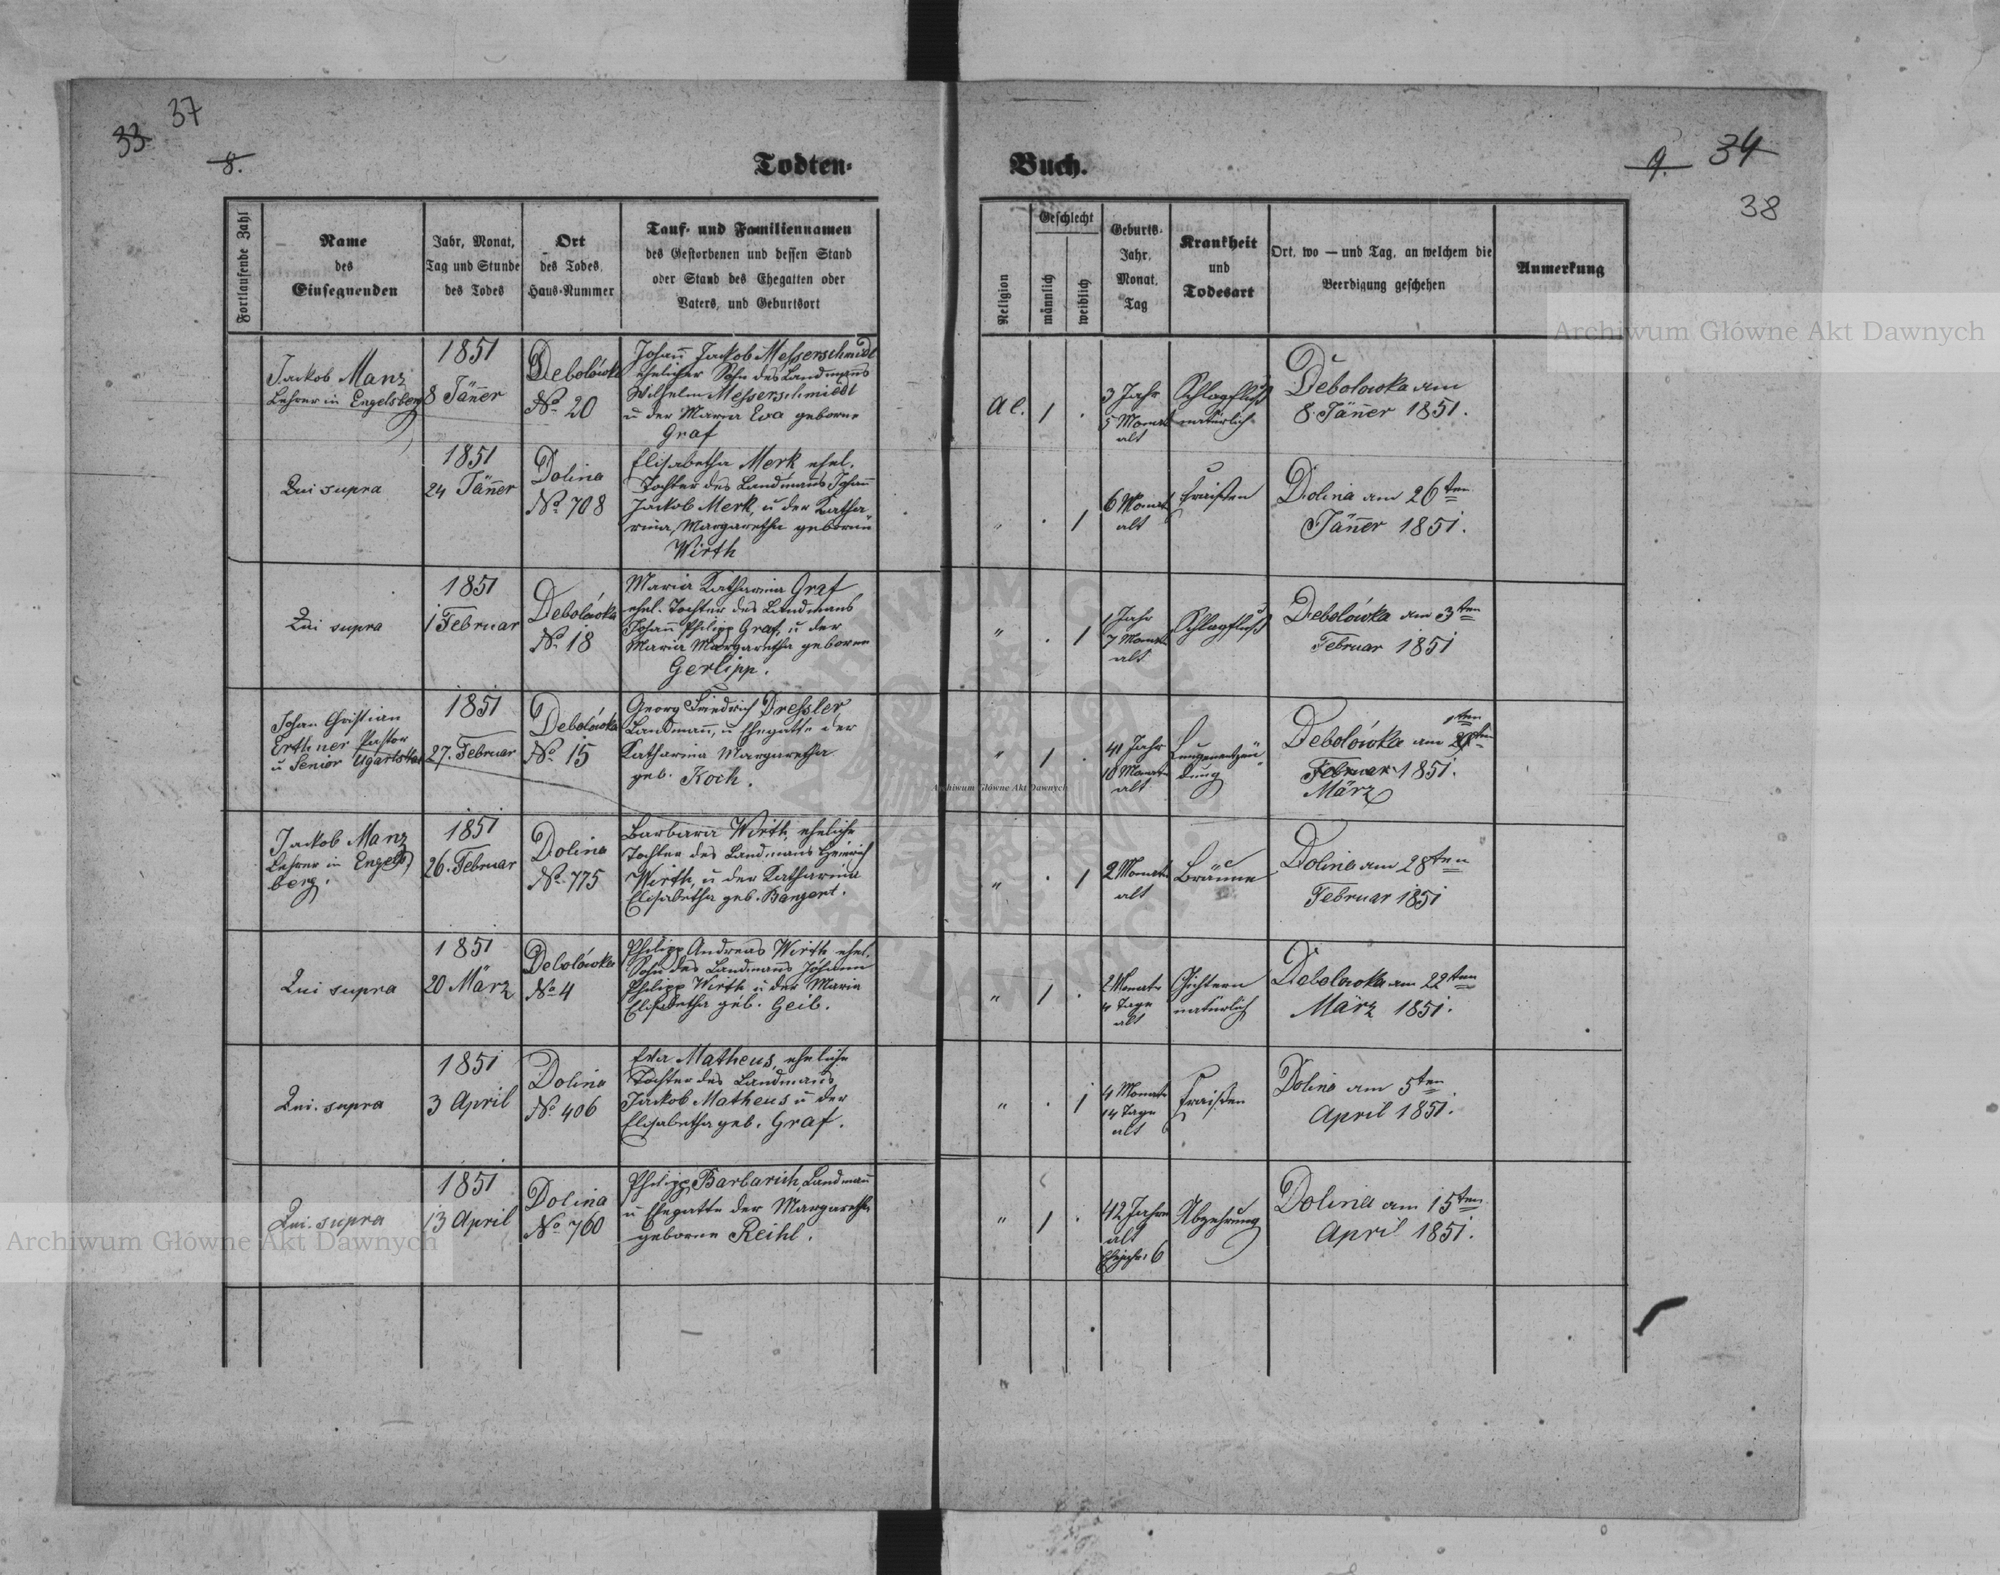 33 37
8.
Todten-
Buch.
9. 34
38
Fortlaufende Zahl
Name
des
Einsegnenden
Jahr, Monat,
Tag und Stunde
des Todes
Ort
des Todes,
Haus-Nummer
Tauf- und Familiennamen
des Gestorbenen und dessen Stand
oder Stand des Ehegatten oder
Vaters, und Geburtsort
Religion
Geschlecht
männlich
weiblich
Geburts-
Jahr,
Monat,
Tag
Krankheit
und
Todesart
Ort, wo — und Tag, an welchem die
Beerdigung geschehen
Anmerkung
Jackob Manz
Lehrer in Engelsberg
1851
8 Jäñer
Debolówka
No. 20
Johañ Jackob Messerschmidt
ehelicher Sohn des Landmañs
Wilhelm Messerschmiedt
u der Maria Eva geborne
Graf
A C.
1
.
3 Jahr
5 Monat
alt
Schlagfluß
natürlich
Debolowka am
8. Jäñer 1851.
Qui supra
1851
24 Jäñer
Dolina
No. 708
Elisabetha Merk ehel.
Tochter des Landmañs Johañ
Jackob Merk, u der Katha-
rina Margaretha geborne
Wirth
"
.
1
6 Monat
alt
Fraißen
Dolina am 26ten
Jäñer 1851.
Qui supra
1851
1 Februar
Debolówka
No. 18
Maria Katharina Graf
ehel. Tochter des Landmans
Johañ Philipp Graf, u der
Maria Margaretha geborne
Gerlipp.
"
.
1
1 Jahr
7 Monat
alt
Schlagfluß
Debolówka am 3ten
Februar 1851
Johan Christian
Erthner Pastor
u Senior Ugartsthal
1851
27. Februar
Debolówka
No. 15
Georg Friedrich Dressler
Landmañ, u Ehegatte der
Katharina Margaretha
geb. Koch.
"
1
.
41 Jahr
10 Monate
alt
Lungenentzün-
dung
1ten
Debolówka am
Februar 1851.
März
Jackob Manz
Lehrer in Engels-
berg.
1851
26. Februar
Dolina
No. 775
Barbara Wirth, eheliche
Tochter des Landmans Heinrich
Wirth, u der Katharina
Elisabetha geb. Bangert.
"
.
1
2 Monate
alt
Bräune
Dolina am 28ten
Februar 1851
Qui supra
1851
20 März
Debolówka
No 4
Philipp Andreas Wirth ehel.
Sohn des Landmañs Johann
Philipp Wirth u der Maria
Elisabetha geb. Geib.
"
1
.
2 Monate
4 Tage
alt
Gichtern
natürlich
Debolowka am 22ten
März 1851.
Qui. supra
1851
3 April
Dolina
No. 406
Eva Matheus, eheliche
Tochter des Landmans
Jackob Matheus u der
Elisabetha geb. Graf.
"
.
1
4 Monate
14 Tage
alt
Fraißen
Dolina am 5ten
April 1851.
Qui. supra
1851
13 April
Dolina
No 760
Philipp Barbarich, Landmañ
u Ehegatte der Margaretha
geborne Reihl.
"
1
.
42 Jahre
alt
Abzehrung
Dolina am 15ten
April 1851.
Archiwum Główne Akt Dawnych
Archiwum Główne Akt Dawnych
Archiwum Główne Akt Dawnych